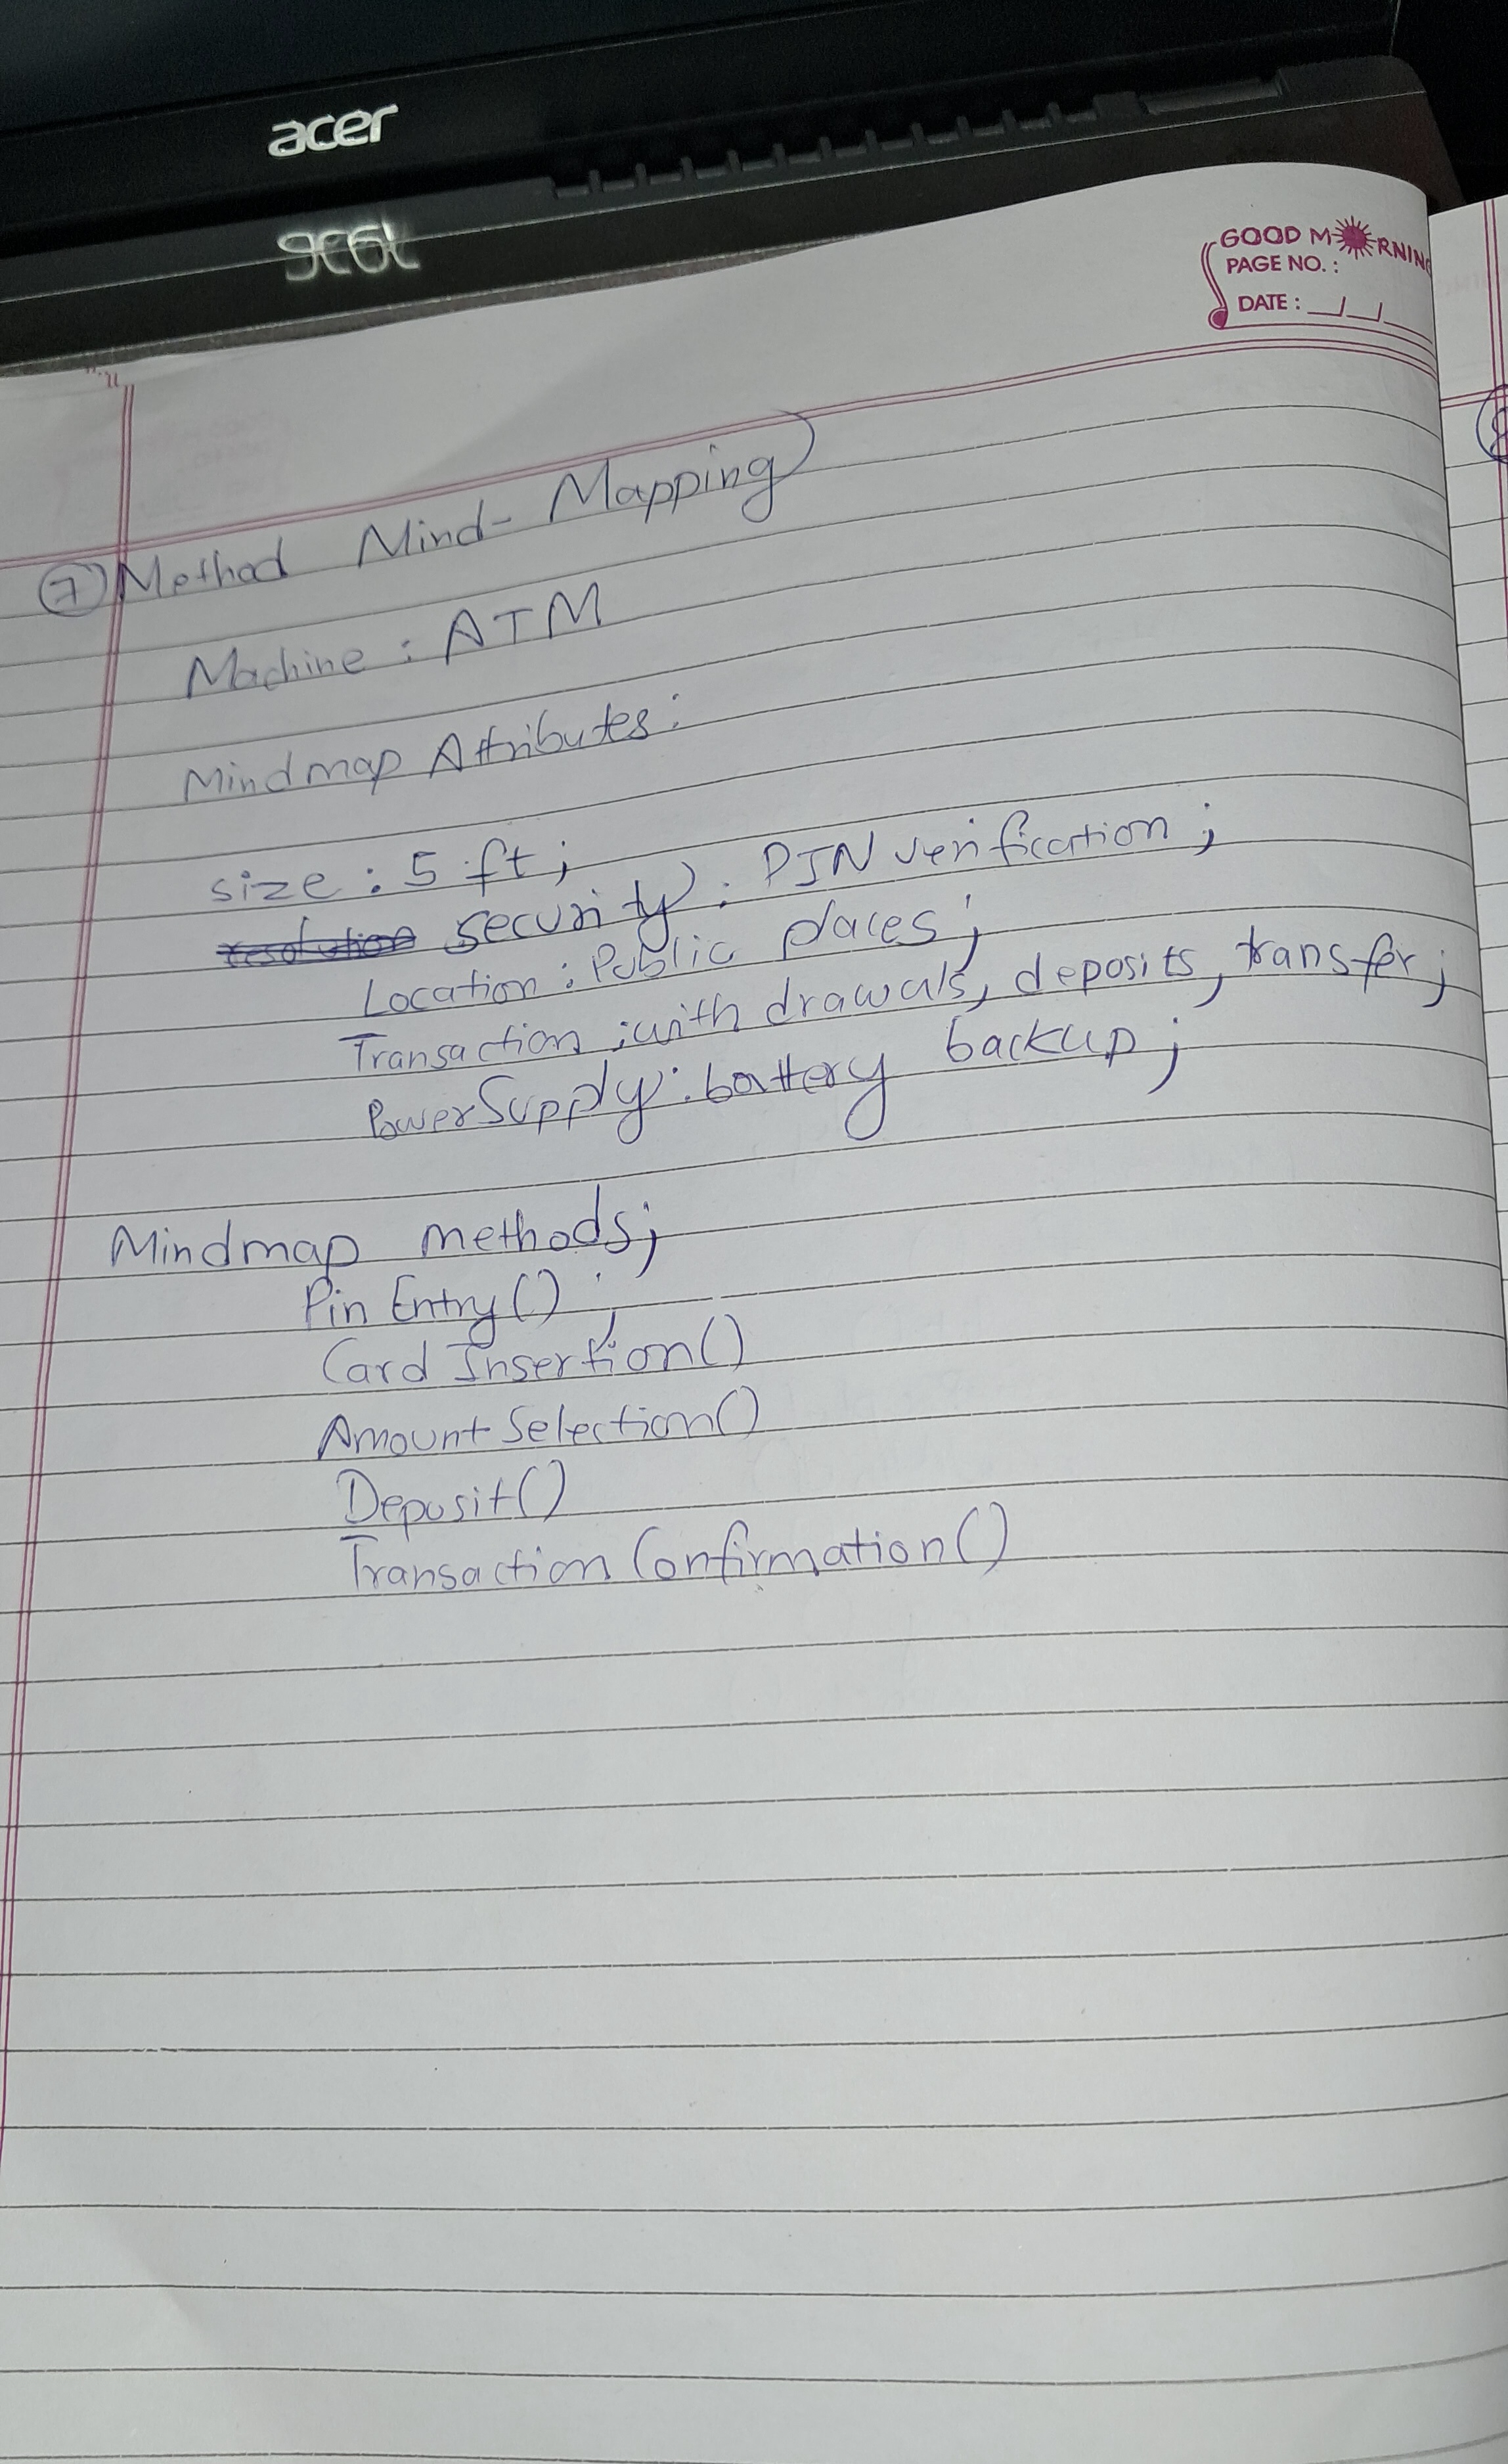 acer
GOOD MORNING
PAGE NO. :
DATE :
7) Method Mind-Mapping
Machine : ATM
Mindmap Attributes:
size : 5 ft ;
resolution security : PIN verification ;
Location : Public places ;
Transaction : withdrawals, deposits, transfer ;
PowerSupply : battery backup ;
Mindmap methods;
Pin Entry() ;
Card Insertion()
Amount Selection()
Deposit()
Transaction Confirmation()